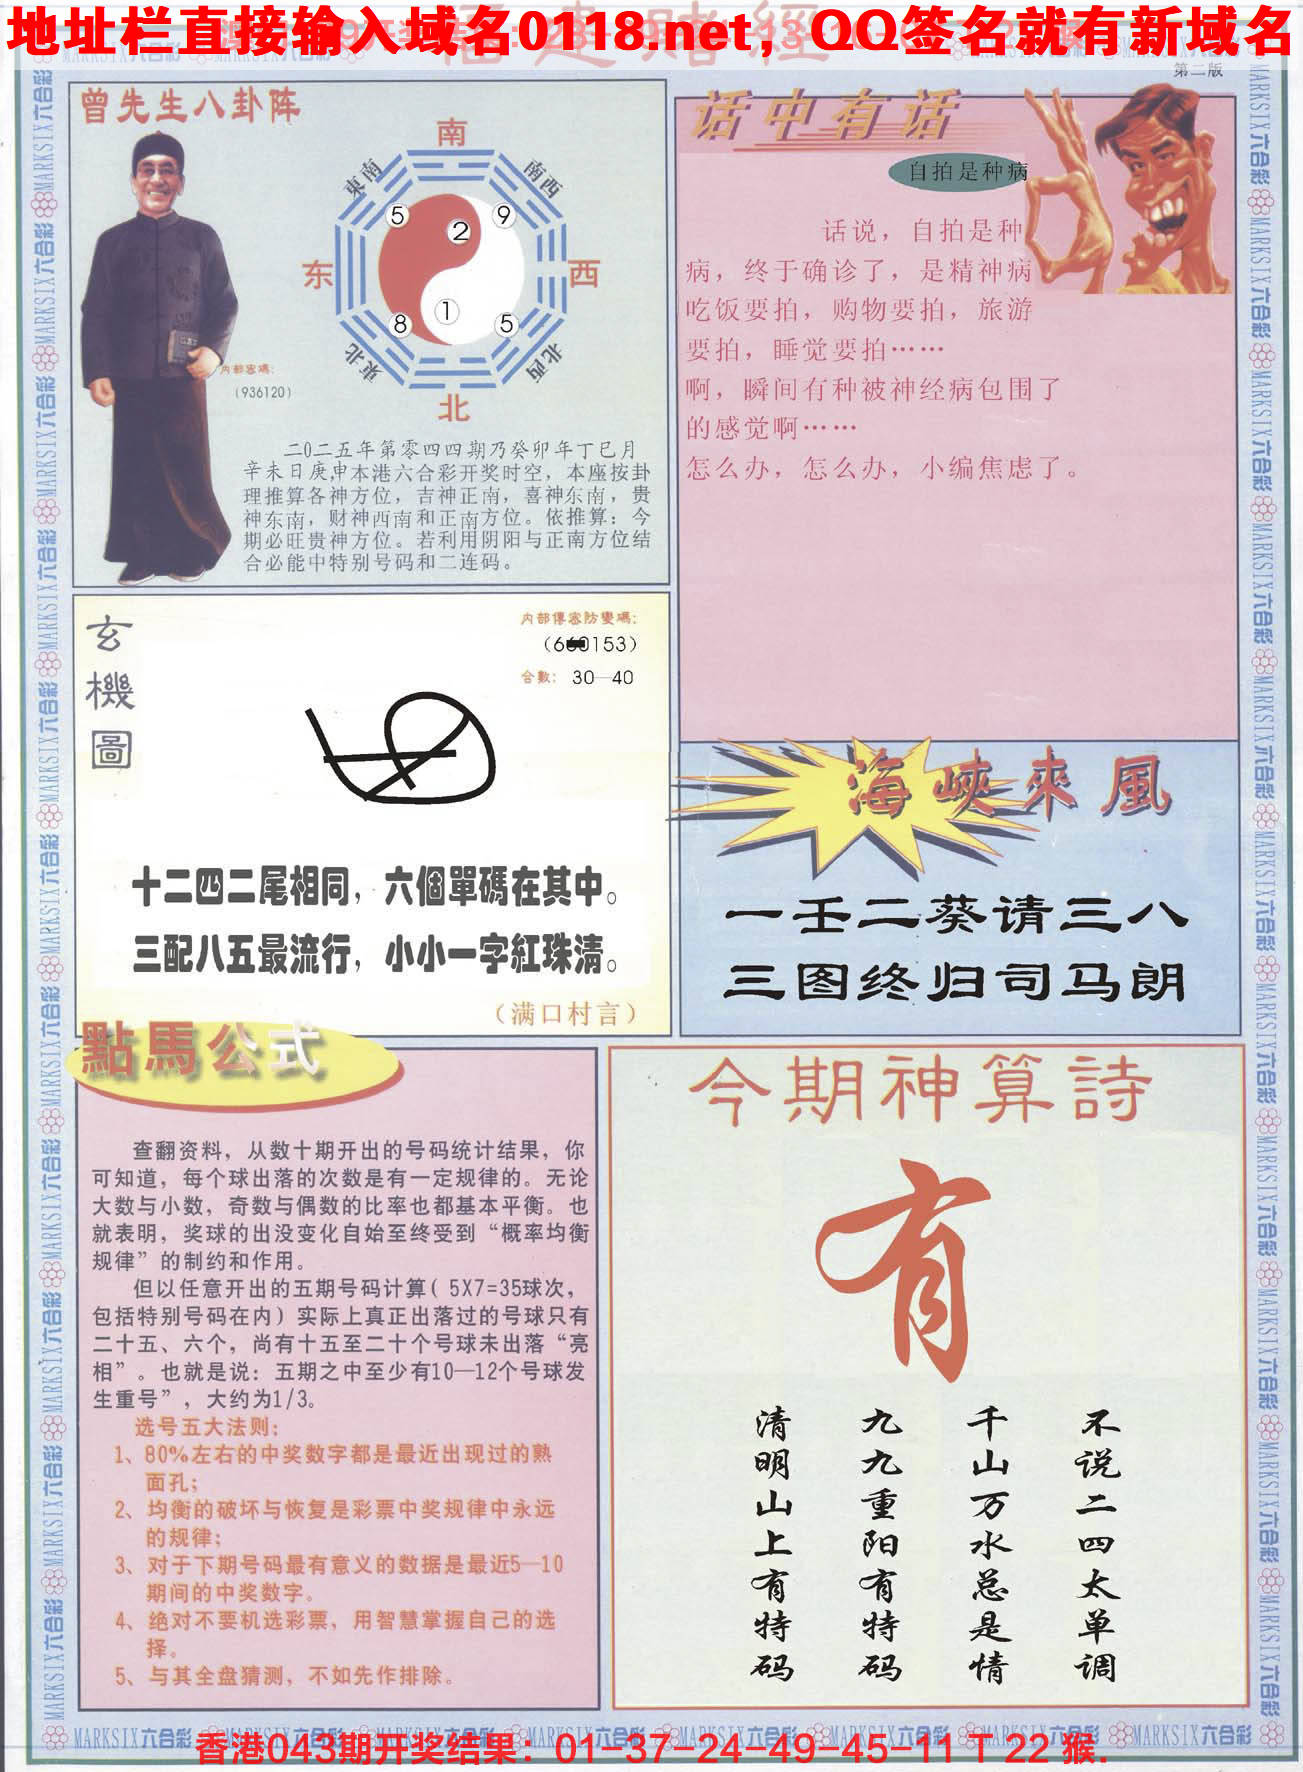 地址栏直接输入域名0118.net，QQ签名就有新域名
第二版
曾先生八卦阵
南
東南
南西
5
9
2
东
西
8
1
5
東北
北西
北
内部密碼：
（936120）
二0二五年第零四四期乃癸卯年丁巳月
辛未日庚申本港六合彩开奖时空，本座按卦
理推算各神方位，吉神正南，喜神东南，贵
神东南，财神西南和正南方位。依推算：今
期必旺贵神方位。若利用阴阳与正南方位结
合必能中特别号码和二连码。
话中有话
自拍是种病
话说，自拍是种
病，终于确诊了，是精神病
吃饭要拍，购物要拍，旅游
要拍，睡觉要拍……
啊，瞬间有种被神经病包围了
的感觉啊……
怎么办，怎么办，小编焦虑了。
玄機圖
内部傳密防變碼：
合數：30—40
十二四二尾相同，六個單碼在其中。
三配八五最流行，小小一字紅珠清。
（满口村言）
海峽來風
一壬二葵请三八
三图终归司马朗
點馬公式
查翻资料，从数十期开出的号码统计结果，你
可知道，每个球出落的次数是有一定规律的。无论
大数与小数，奇数与偶数的比率也都基本平衡。也
就表明，奖球的出没变化自始至终受到“概率均衡
规律”的制约和作用。
但以任意开出的五期号码计算( 5X7=35球次，
包括特别号码在内）实际上真正出落过的号球只有
二十五、六个，尚有十五至二十个号球未出落“亮
相”。也就是说：五期之中至少有10—12个号球发
生重号”，大约为1/3。
选号五大法则：
1、80%左右的中奖数字都是最近出现过的熟
面孔；
2、均衡的破坏与恢复是彩票中奖规律中永远
的规律；
3、对于下期号码最有意义的数据是最近5—10
期间的中奖数字。
4、绝对不要机选彩票，用智慧掌握自己的选
择。
5、与其全盘猜测，不如先作排除。
今期神算詩
有
不说二四太单调
千山万水总是情
九九重阳有特码
清明山上有特码
MARKSIX六合彩
香港043期开奖结果：01-37-24-49-45-11 T 22 猴.